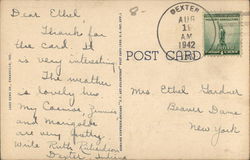 Dear Ethel,
Thanks for
the card. It
is very interesting.
The weather
is lovely here
My Cosmos, Zinnias
and Marigolds
are very pretty.
Write Ruth
Dexter
8-
DEXTER
AUG
19
AM
1942
POST CARD
Mrs Ethel Gardner
Beaver Dams
New York